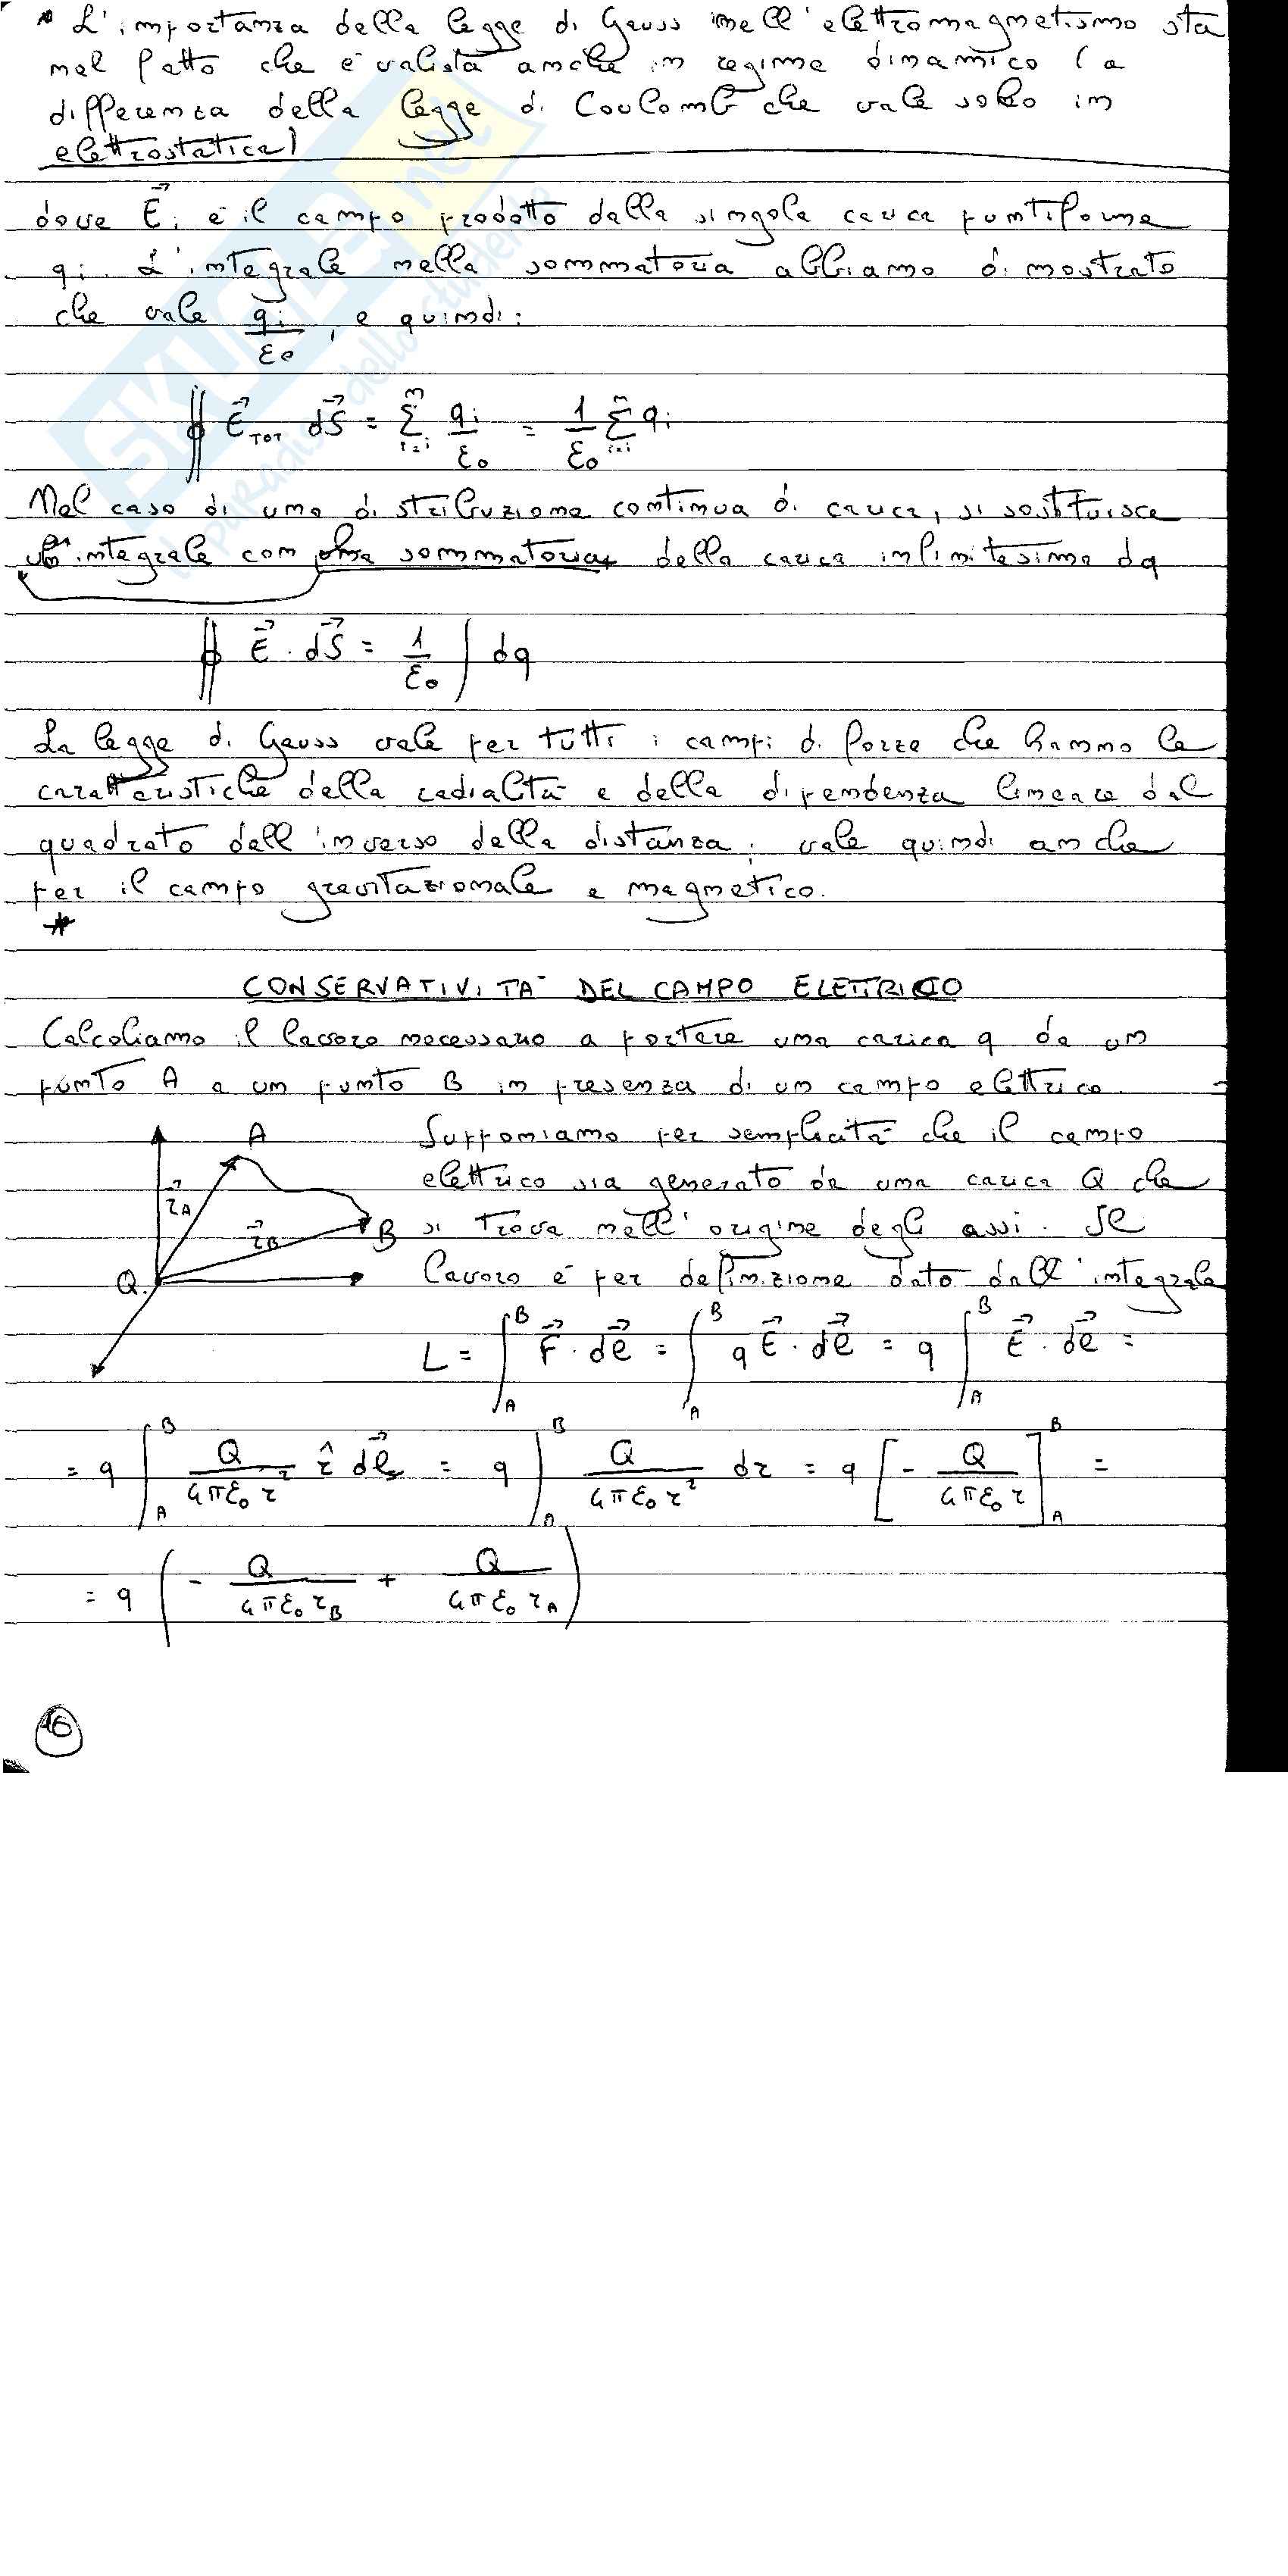 * L'importanza della legge di Gauss nell'elettromagnetismo sta
nel fatto che è valida anche in regime dinamico (a
differenza della legge di Coulomb che vale solo in
elettrostatica)
dove E⃗i è il campo prodotto dalla singola carica puntiforme
qi. L'integrale nella sommatoria abbiamo dimostrato
che vale qi/ε0, e quindi:
∯ E⃗TOT dS⃗ = Σ(i=i)^n qi/ε0 = 1/ε0 Σ(i=i)^n qi
Nel caso di una distribuzione continua di carica, si sostituisce
integrale con una sommatoria della carica infinitesima dq
∯ E⃗ · dS⃗ = 1/ε0 ∫ dq
La legge di Gauss vale per tutti i campi di forze che hanno le
caratteristiche della radialità e della dipendenza lineare dal
quadrato dell'inverso della distanza; vale quindi anche
per il campo gravitazionale e magnetico.
*
CONSERVATIVITÀ DEL CAMPO ELETTRICO
Calcoliamo il lavoro necessario a portare una carica q da un
punto A a un punto B in presenza di un campo elettrico.
A
r⃗A
r⃗B
B
Q
Supponiamo per semplicità che il campo
elettrico sia generato da una carica Q che
si trova nell'origine degli assi. Il
lavoro è per definizione dato dall'integrale
L = ∫_A^B F⃗ · dl⃗ = ∫_A^B qE⃗ · dl⃗ = q ∫_A^B E⃗ · dl⃗ =
= q ∫_A^B Q/(4πε0 r²) r̂ dl⃗ = q ∫_A^B Q/(4πε0 r²) dr = q [- Q/(4πε0 r)]_A^B =
= q (- Q/(4πε0 rB) + Q/(4πε0 rA))
16
SKUOLA.net
il paradiso dello studente